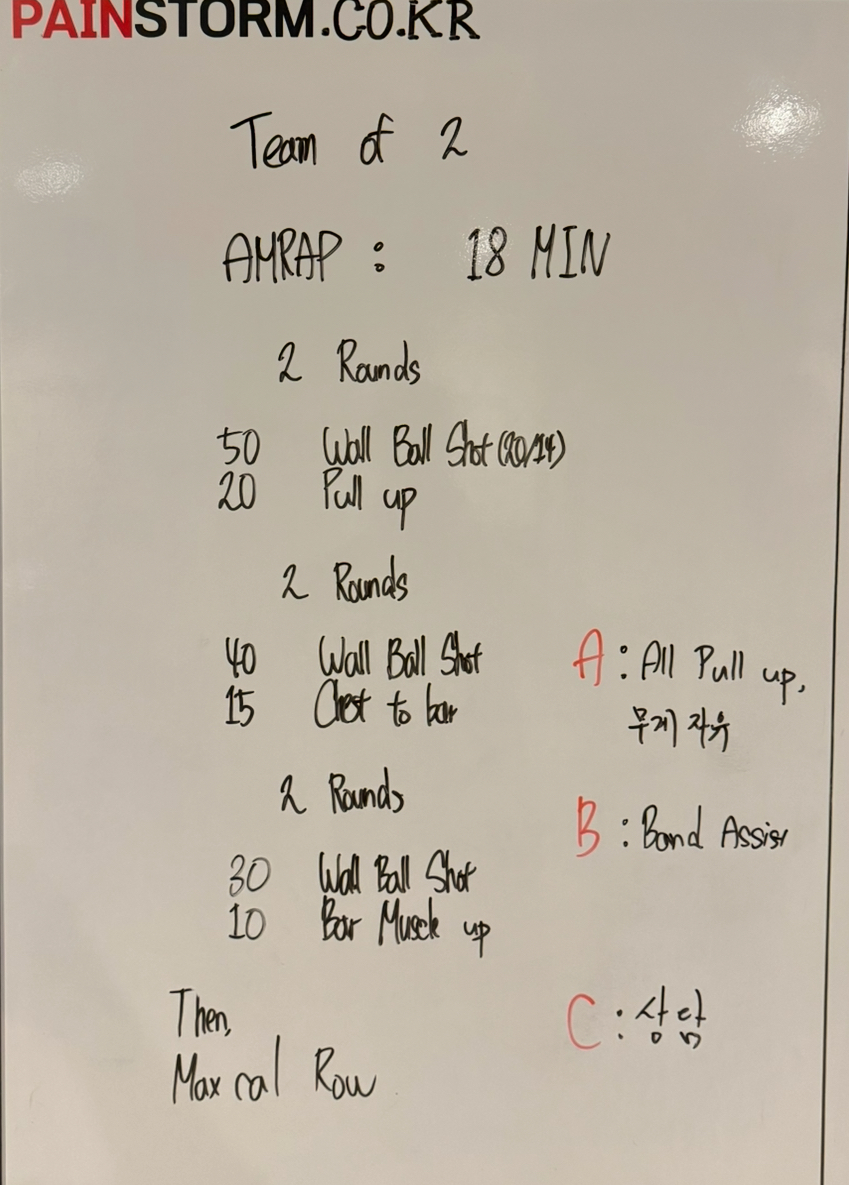 PAINSTORM.CO.KR
Team of 2
AMRAP : 18 MIN
2 Rounds
50 Wall Ball Shot (20/14)
20 Pull up
2 Rounds
40 Wall Ball Shot
15 Chest to bar
2 Rounds
30 Wall Ball Shot
10 Bar Muscle up
Then,
Max cal Row
A : All Pull up,
무게 자유
B : Band Assist
C : 상담